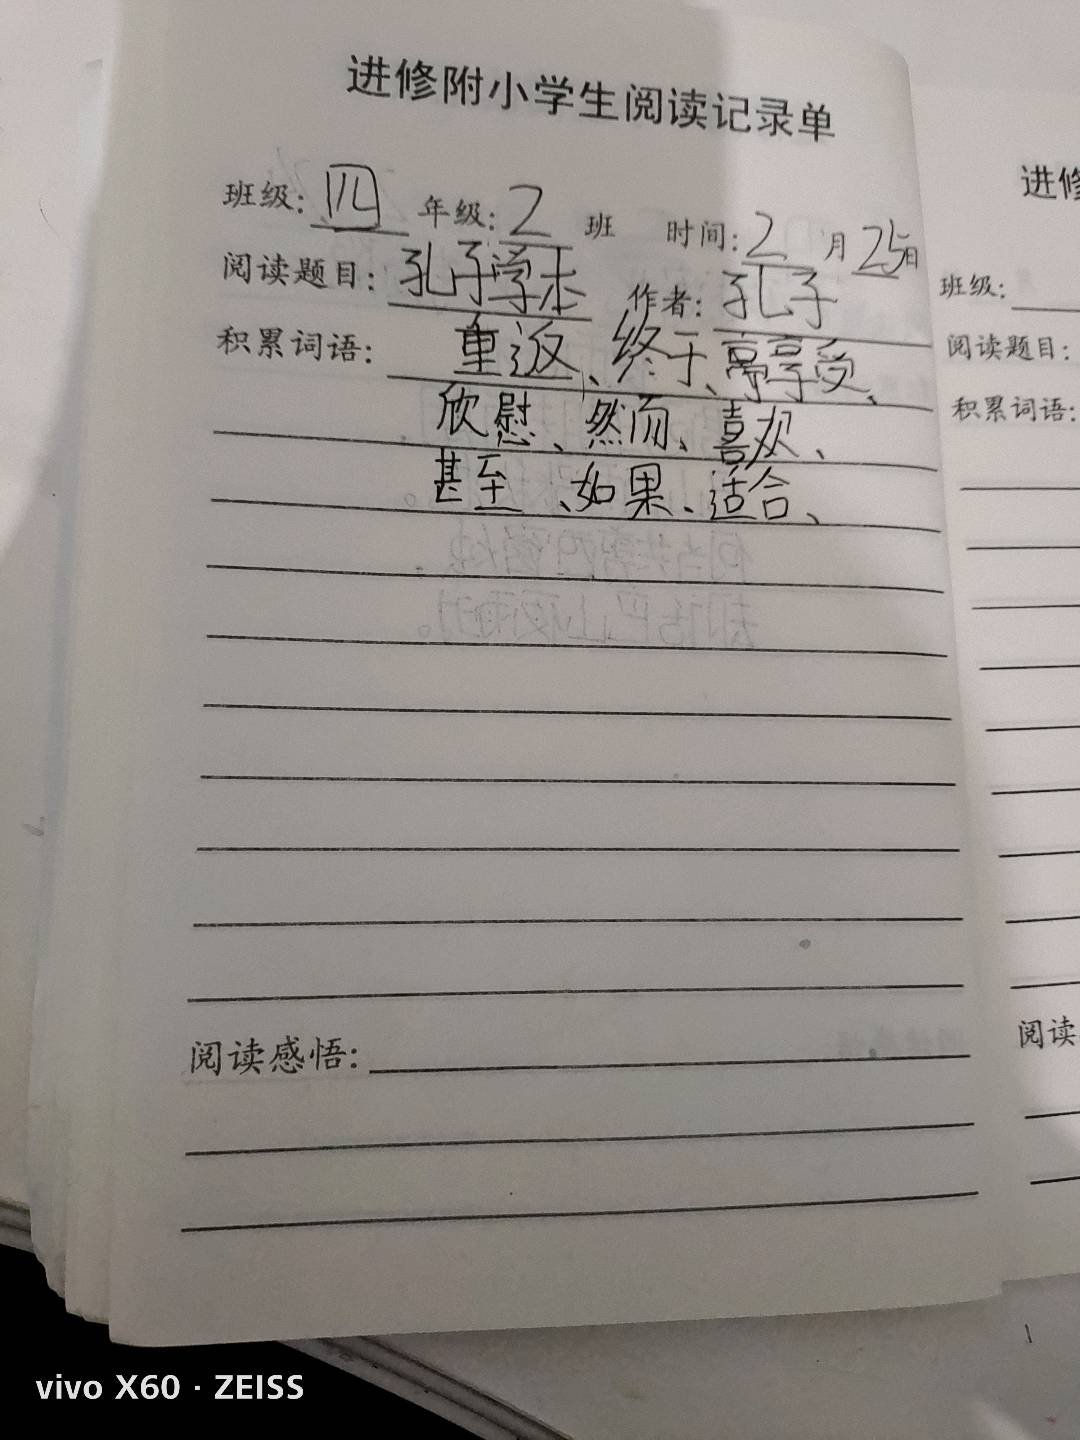 进修附小学生阅读记录单
班级：四 年级：2 班 时间：2 月 25日
阅读题目：孔子学乐 作者：孔子
积累词语： 重返、终于、享受、
欣慰、然而、喜欢、
甚至、如果、适合、
何当共剪西窗烛，
却话巴山夜雨时。
阅读感悟：
进修
班级：
阅读题目：
积累词语：
阅读
vivo X60 · ZEISS